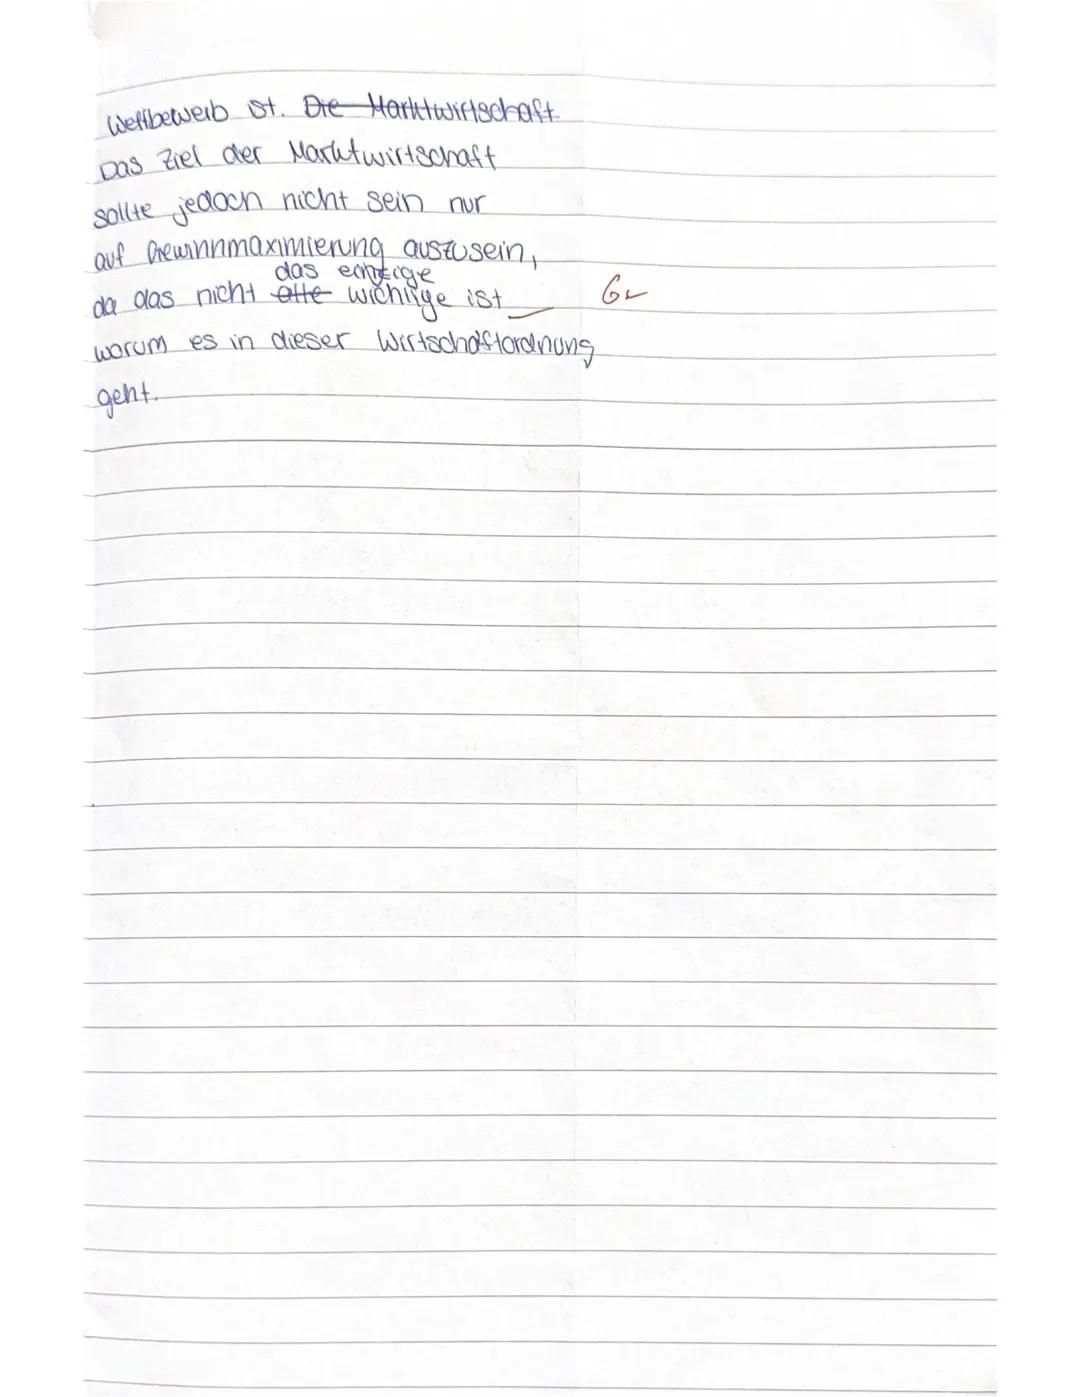 Wettbewerb ist. Die Marktwirtschaft
Das Ziel der Marktwirtschaft
sollte jedoch nicht sein nur
auf Gewinnmaximierung auszusein,
das einzige
da das nicht alle wichtige ist
warum es in dieser Wirtschaftordnung
geht.